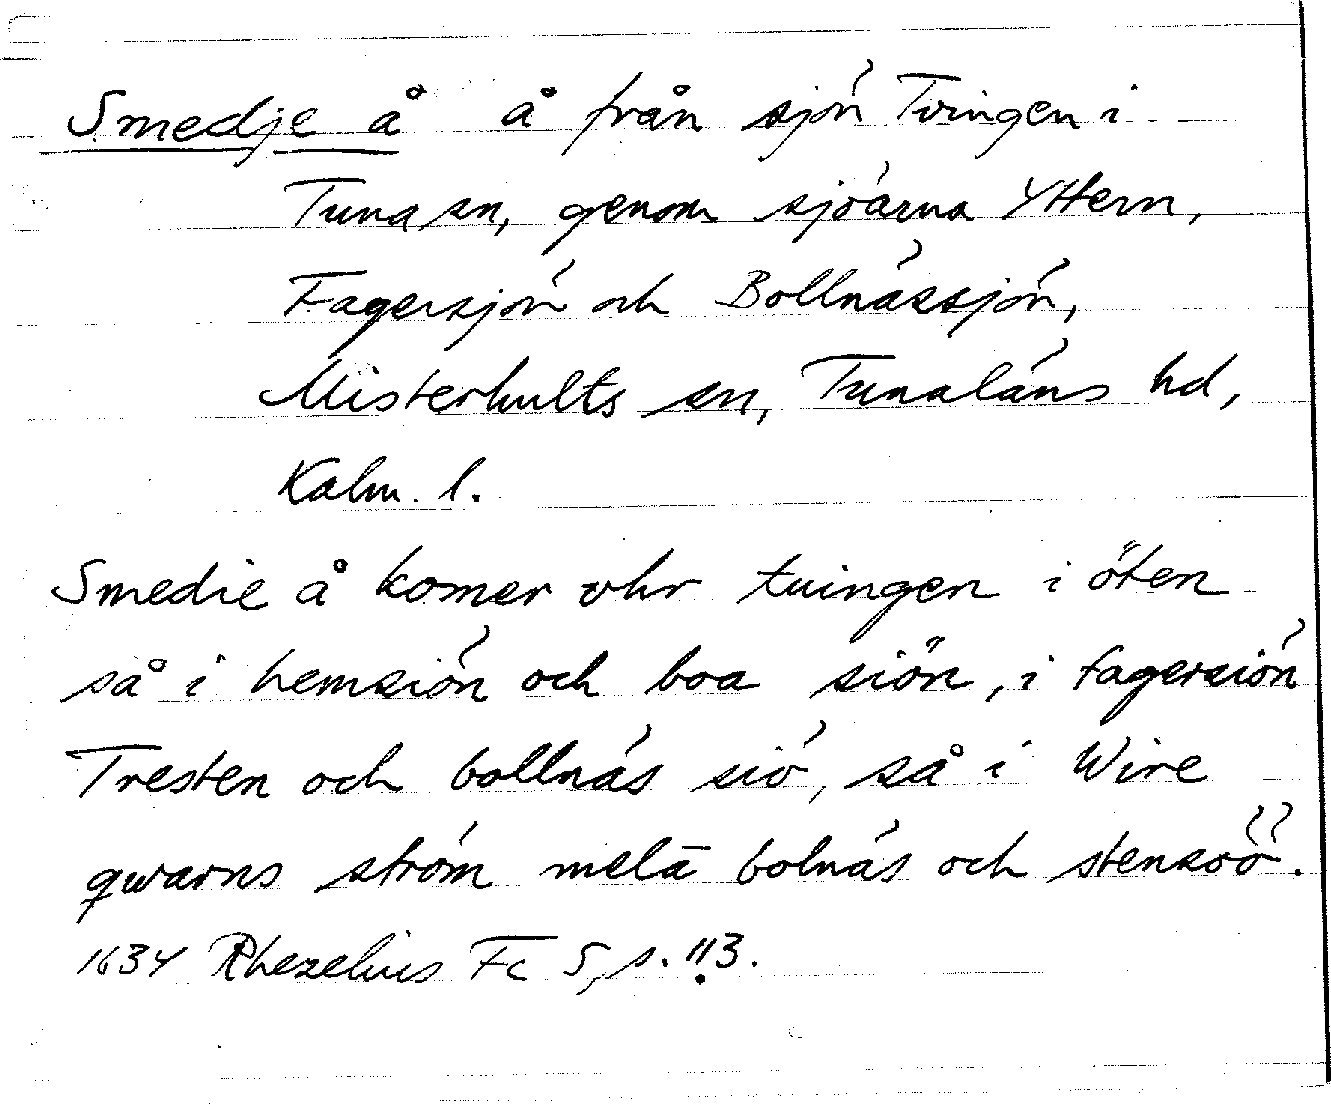 Smedje å å från sjön Tvingen i
Tuna sn, genom sjöarna Yttern,
Fagersjön och Bollnässjön,
Misterhults sn, Tunaläns hd,
Kalm. l.
Smedie å komer vhr tuingen i öten
så i hemsiön och boa siön, i fagersiön
Tresten och bollnäs siö, så i Wire
qwarns ström melā bolnäs och stensöö.
1634 Rhezelius Fc 5, s. 113.